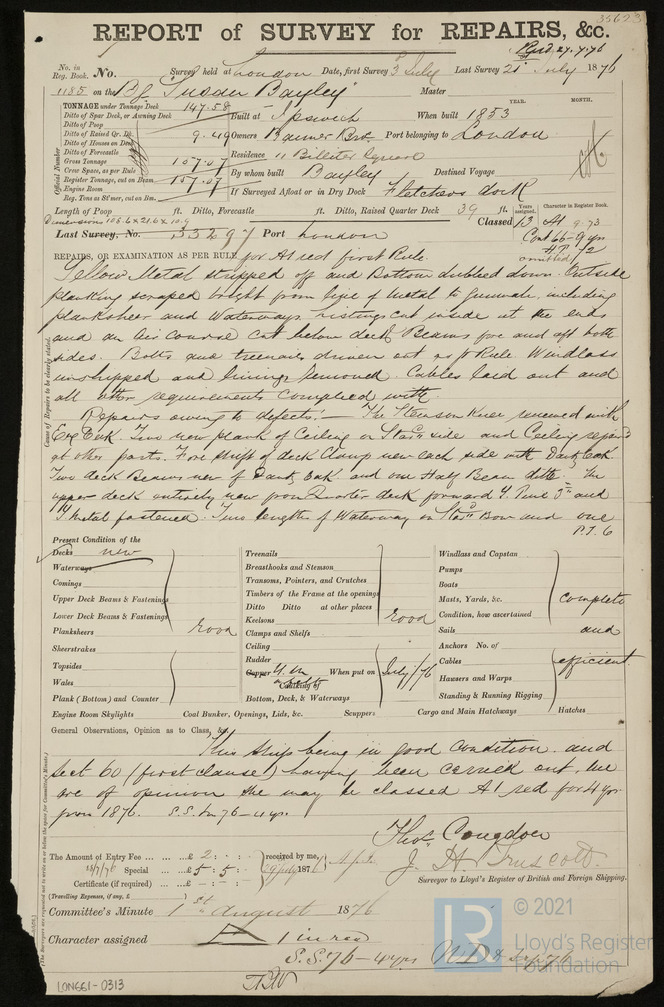 35623
REPORT of SURVEY for REPAIRS, &c.
Recd 27.7.76
No. in Reg. Book. No. Survey held at London Date, first Survey 3 July Last Survey 21 July 1876
1185 on the Bg "Susan Bayley" Master
TONNAGE under Tonnage Deck 147.58
Ditto of Spar Deck, or Awning Deck
Ditto of Poop
Ditto of Raised Qr. Dk. 9.49
Ditto of Houses on Deck
Ditto of Forecastle
Gross Tonnage 157.07
Crew Space, as per Rule
Register Tonnage, cut on Beam 157.07
Engine Room
Reg. Tons as St'mer, cut on Bm.
Official Number
YEAR. MONTH.
Built at Ipswich When built 1853
Owners Port belonging to London
Residence 11 Billiter Square
By whom built Bayley Destined Voyage
If Surveyed Afloat or in Dry Dock Fletchers dock
Length of Poop ft. Ditto, Forecastle ft. Ditto, Raised Quarter Deck 39 ft.
Dimensions 108.6 x 21.6 x 10.9
Years assigned. Character in Register Book.
Classed 13 A1 9.73
Cont 66-9 yrs
omitted
Last Survey, No. 33297 Port London
REPAIRS, OR EXAMINATION AS PER RULE for A1 red first Rule.
Yellow Metal stripped off and Bottom dubbed down. Outside
planking scraped bright from line of metal to Gunwale, including
planksheer and Waterways, listings cut inside at the ends
and an air course cut below deck Beams fore and aft both
sides. Bolts and treenails driven out as p Rule. Windlass
unshipped and linings removed. Cables laid out and
all other requirements complied with.
Repairs owing to defects:— The Stemson Knee renewed with
Eng Oak. Two new plank of Ceiling on Starb side and Ceiling repaird
at other parts. Fore shift of deck Clamp new each side with Dantz Oak
Two deck Beams new of Dantz Oak and one Half Beam ditto. The
upper deck entirely new from Quarter deck forward Y. Pine 3in and
Y Metal fastened. Two lengths of Waterway on Starb Bow and one
P.T.O
Cause of Repairs to be clearly stated.
Present Condition of the
Decks new
Waterways
Comings
Upper Deck Beams & Fastenings
Lower Deck Beams & Fastenings
Planksheers good
Sheerstrakes
Topsides
Wales
Plank (Bottom) and Counter
Treenails
Breasthooks and Stemson
Transoms, Pointers, and Crutches
Timbers of the Frame at the openings
Ditto Ditto at other places
Keelsons good
Clamps and Shelfs
Ceiling
Rudder
Copper Y.M. When put on July/76
Caulking of
Bottom, Deck, & Waterways
Windlass and Capstan
Pumps
Boats
Masts, Yards, &c. complete
Condition, how ascertained
Sails and
Anchors No. of
Cables efficient
Hawsers and Warps
Standing & Running Rigging
Engine Room Skylights Coal Bunker, Openings, Lids, &c. Scuppers Cargo and Main Hatchways Hatches
General Observations, Opinion as to Class, &c.
This ship being in good condition and
Sect 60 (first clause) having been carried out, we
are of opinion she may be classed A1 red for 4 yrs
from 1876. S.S. Ln 76-4 yrs.
Thos Congdon
J. H. Truscott.
Surveyor to Lloyd's Register of British and Foreign Shipping.
The Amount of Entry Fee ... £ 2 : :
Special ... £ 5 : 5 :
Certificate (if required) ... £ - : - :
(Travelling Expenses, if any, £ )
received by me,
29 July 1876
Committee's Minute 1st August 1876
Character assigned A 1 in red
S.S. 76-4 yrs
LON661-0313
© 2021
Lloyd's Register
Foundation